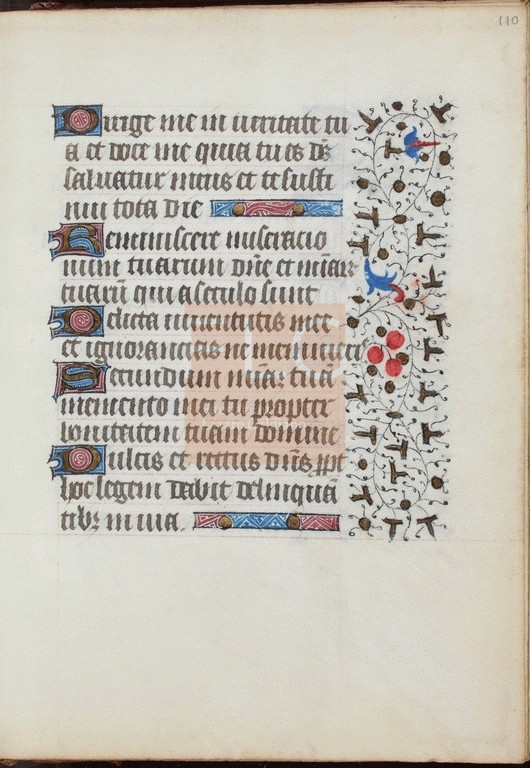 110
Dirige me in ueritate tu
a et doce me quia tu es ds̄
saluatur meus et te susti
nui tota die
Reminiscere miseracio
num tuarum dn̄e et miār
tuarū qui a seculo sunt
Delicta iuuentutis mee
et ignorancias ne memineris
Secundum miām tuā
memento mei tu propter
bonitatem tuam domine
Dulcis et rectus dn̄s ppt
hoc legem dabit delinquā
tibꝫ in uia